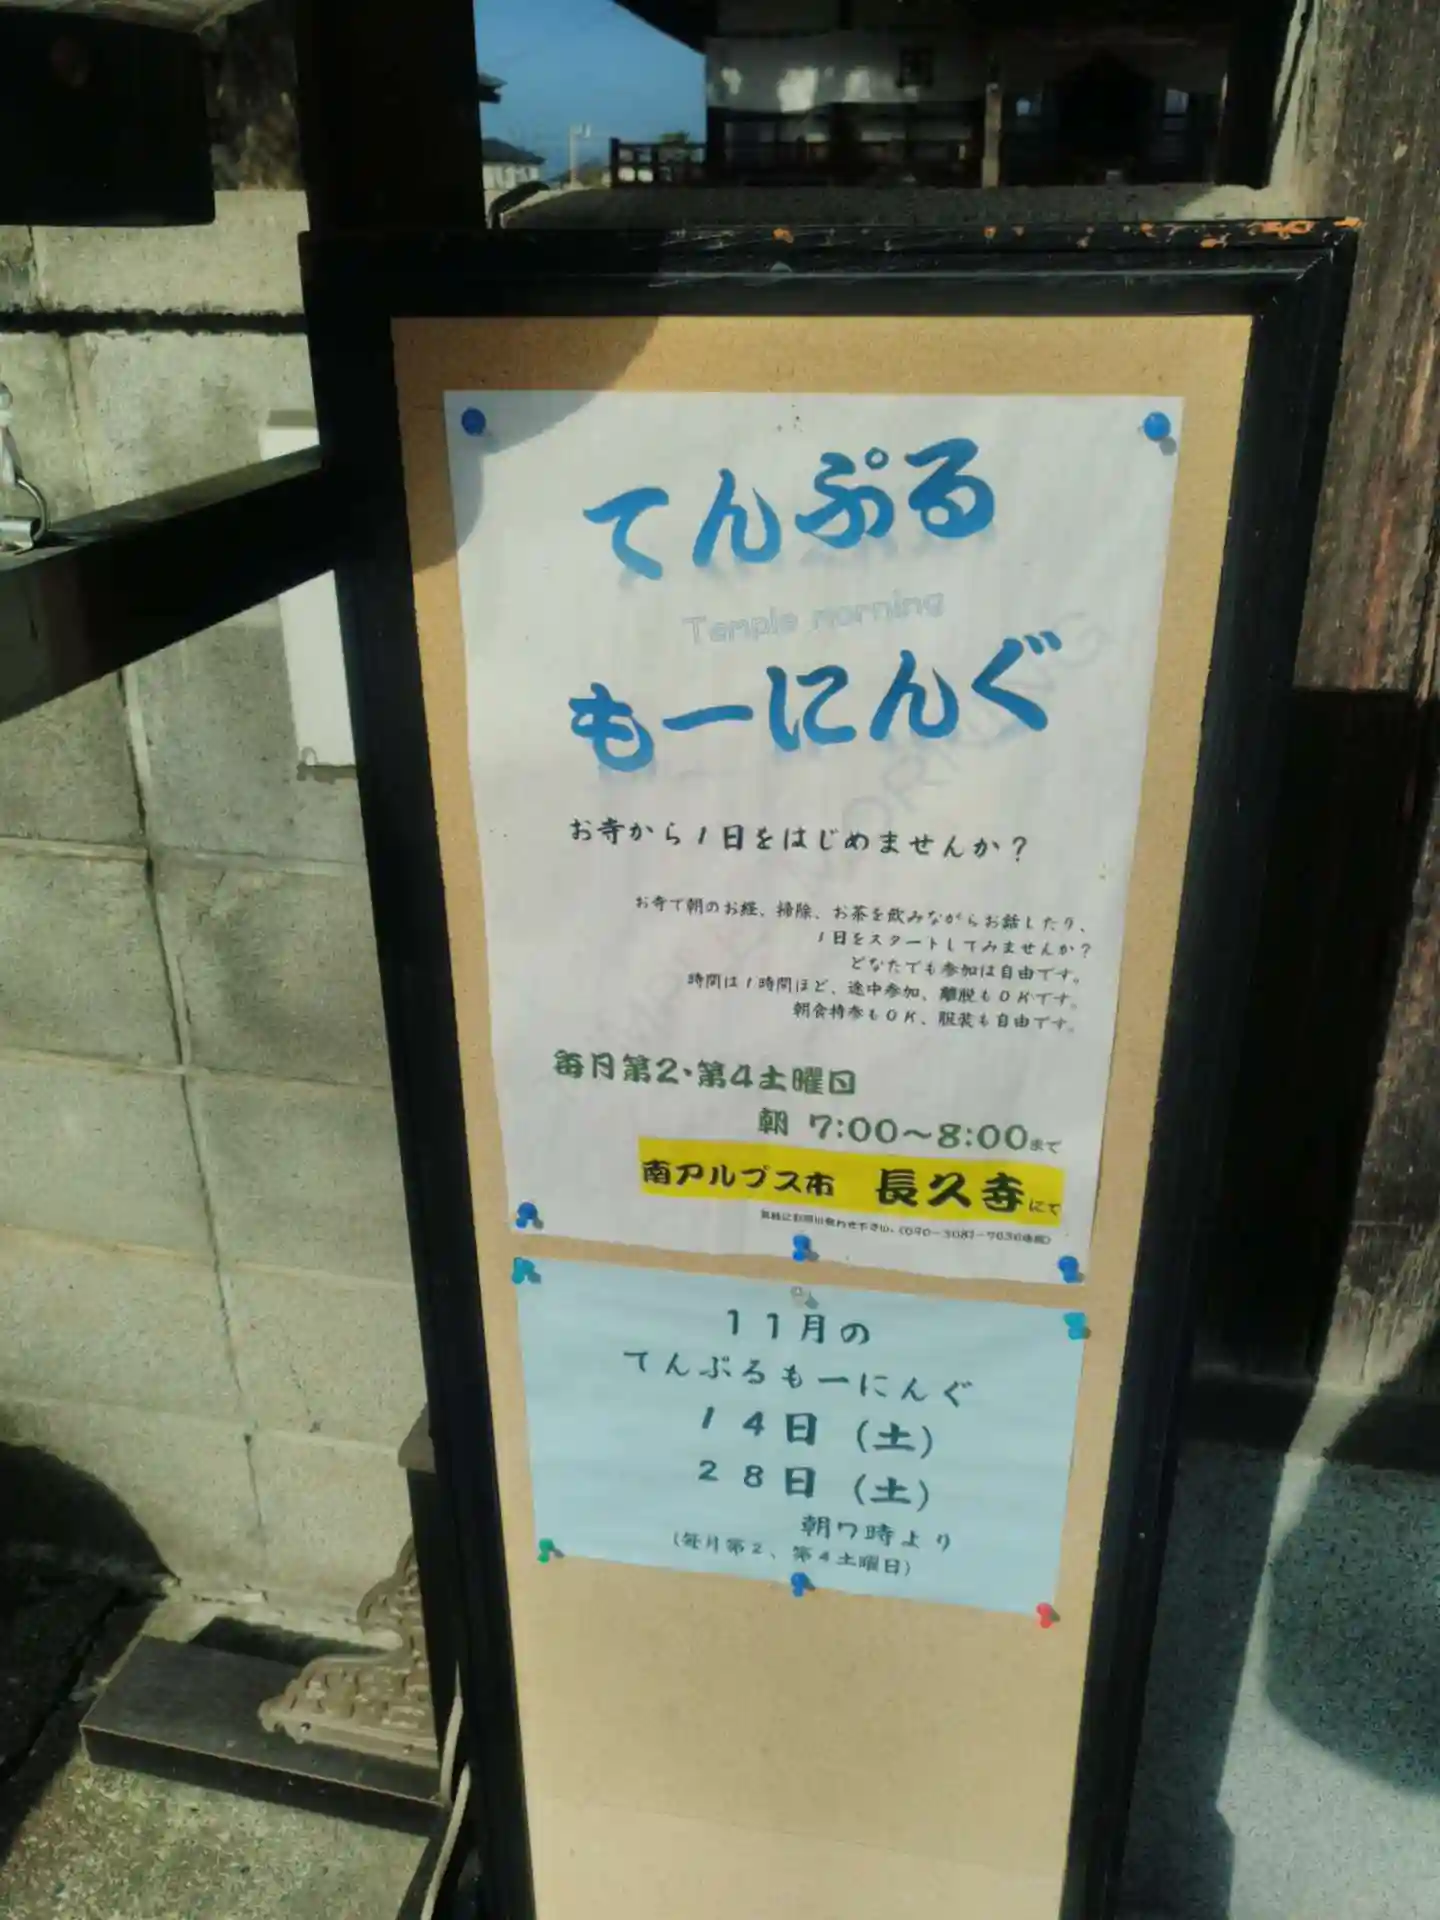 てんぷる
Temple morning
もーにんぐ
お寺から1日をはじめませんか?
お寺で朝のお経、掃除、お茶を飲みながらお話したり、
1日をスタートしてみませんか?
どなたでも参加は自由です。
時間は1時間ほど、途中参加、離脱もOKです。
朝食持参もOK、服装も自由です。
毎月第2・第4土曜日
朝 7:00～8:00まで
南アルプス市 長久寺にて
11月の
てんぷるもーにんぐ
14日(土)
28日(土)
朝7時より
(毎月第2、第4土曜日)